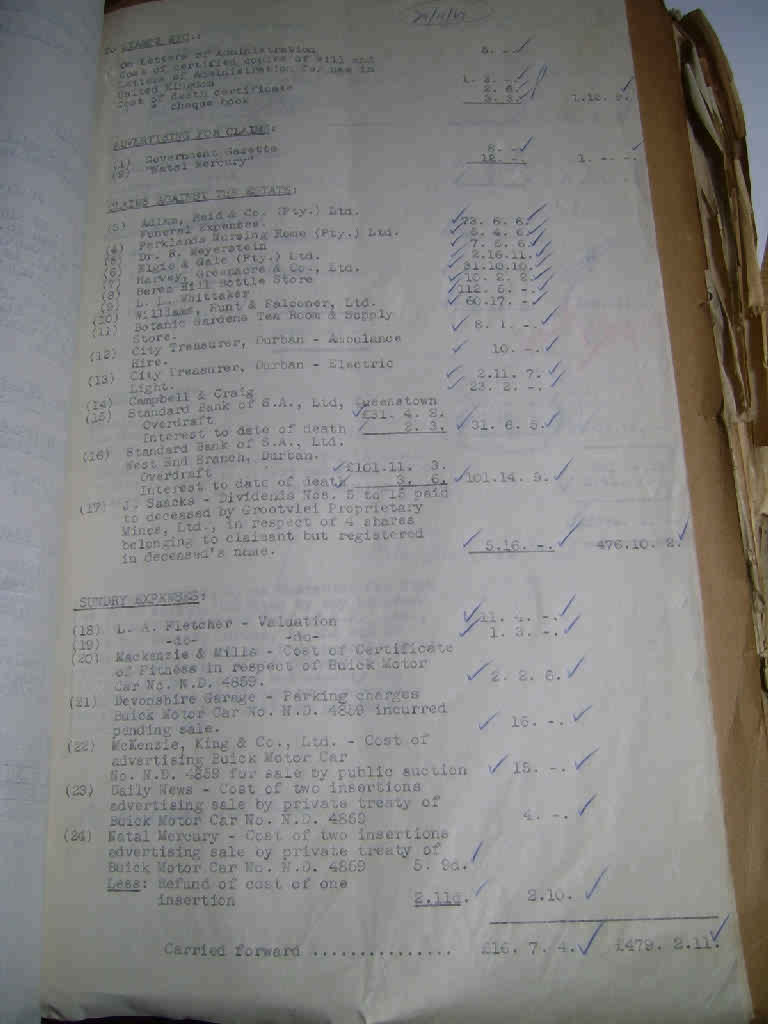 To STAMPS ETC.:
On Letters of Administration 5. -.
Cost of certified copies of Will and
Letters of Administration for use in
United Kingdom 1. 3. -.
Cost of death certificate 2. 6.
" " cheque book 2. 3. 1.12. 9.
ADVERTISING FOR CLAIMS:
(1) Government Gazette 8. -.
(2) "Natal Mercury" 12. -. 1. -. -.
CLAIMS AGAINST THE ESTATE:
(3) Adlam, Reid & Co. (Pty.) Ltd.
Funeral Expenses. 73. 6. 6.
(4) Parklands Nursing Home (Pty.) Ltd. 5. 4. 6.
(5) Dr. B. Meyerstein 7. 5. 6.
(6) Elgie & Gale (Pty.) Ltd. 2.16.11.
(7) Harvey, Greenacre & Co., Ltd. 31.10.10.
(8) Berea Hill Bottle Store 10. 2. 2.
(9) L. L. Whittaker 112. 5. -.
(10) Williams, Hunt & Falconer, Ltd. 60.17. -.
(11) Botanic Gardens Tea Room & Supply
Store. 8. 1. -.
(12) City Treasurer, Durban - Ambulance
Hire. 10. -.
(13) City Treasurer, Durban - Electric
Light. 2.11. 7.
(14) Campbell & Craig 23. 2. -.
(15) Standard Bank of S.A., Ltd, Queenstown
Overdraft £31. 4. 2.
Interest to date of death 2. 3. 31. 6. 5.
(16) Standard Bank of S.A., Ltd.
West End Branch, Durban.
Overdraft £101.11. 3.
Interest to date of death 3. 6. 101.14. 9.
(17) J. Saacks - Dividends Nos. 5 to 15 paid
to deceased by Grootvlei Proprietary
Mines, Ltd., in respect of 4 shares
belonging to claimant but registered
in deceased's name. 5.16. -. 476.10. 2.
SUNDRY EXPENSES:
(18) L. A. Fletcher - Valuation 11. 4. -.
(19) -do- -do- 1. 3. -.
(20) Mackenzie & Mills - Cost of Certificate
of Fitness in respect of Buick Motor
Car No. N.D. 4859. 2. 2. 6.
(21) Devonshire Garage - Parking charges
Buick Motor Car No. N.D. 4859 incurred
pending sale. 16. -.
(22) McKenzie, King & Co., Ltd. - Cost of
advertising Buick Motor Car
No. N.D. 4859 for sale by public auction 15. -.
(23) Daily News - Cost of two insertions
advertising sale by private treaty of
Buick Motor Car No. N.D. 4859 4. -.
(24) Natal Mercury - Cost of two insertions
advertising sale by private treaty of
Buick Motor Car No. N.D. 4859 5. 9d.
Less: Refund of cost of one
insertion 2.11d. 2.10.
Carried forward ............... £16. 7. 4. £479. 2.11.